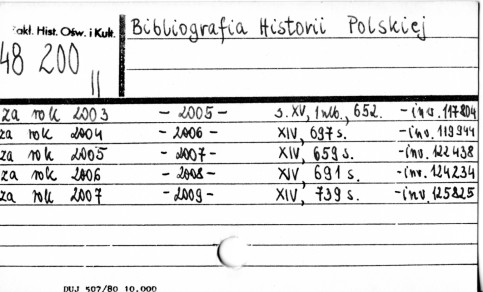 Zakł. Hist. Ośw. i Kult.
Bibliografia Historii Polskiej
48 200
II
za rok 2003 - 2005 - s. XV, 1 nlb., 652. - inv. 117804
za rok 2004 - 2006 - XIV, 697 s. - inv. 119944
za rok 2005 - 2007 - XIV, 659 s. - inv. 122438
za rok 2006 - 2008 - XIV, 691 s. - inv. 124234
za rok 2007 - 2009 - XIV, 739 s. - inv. 125825
DUJ 507/80 10.000